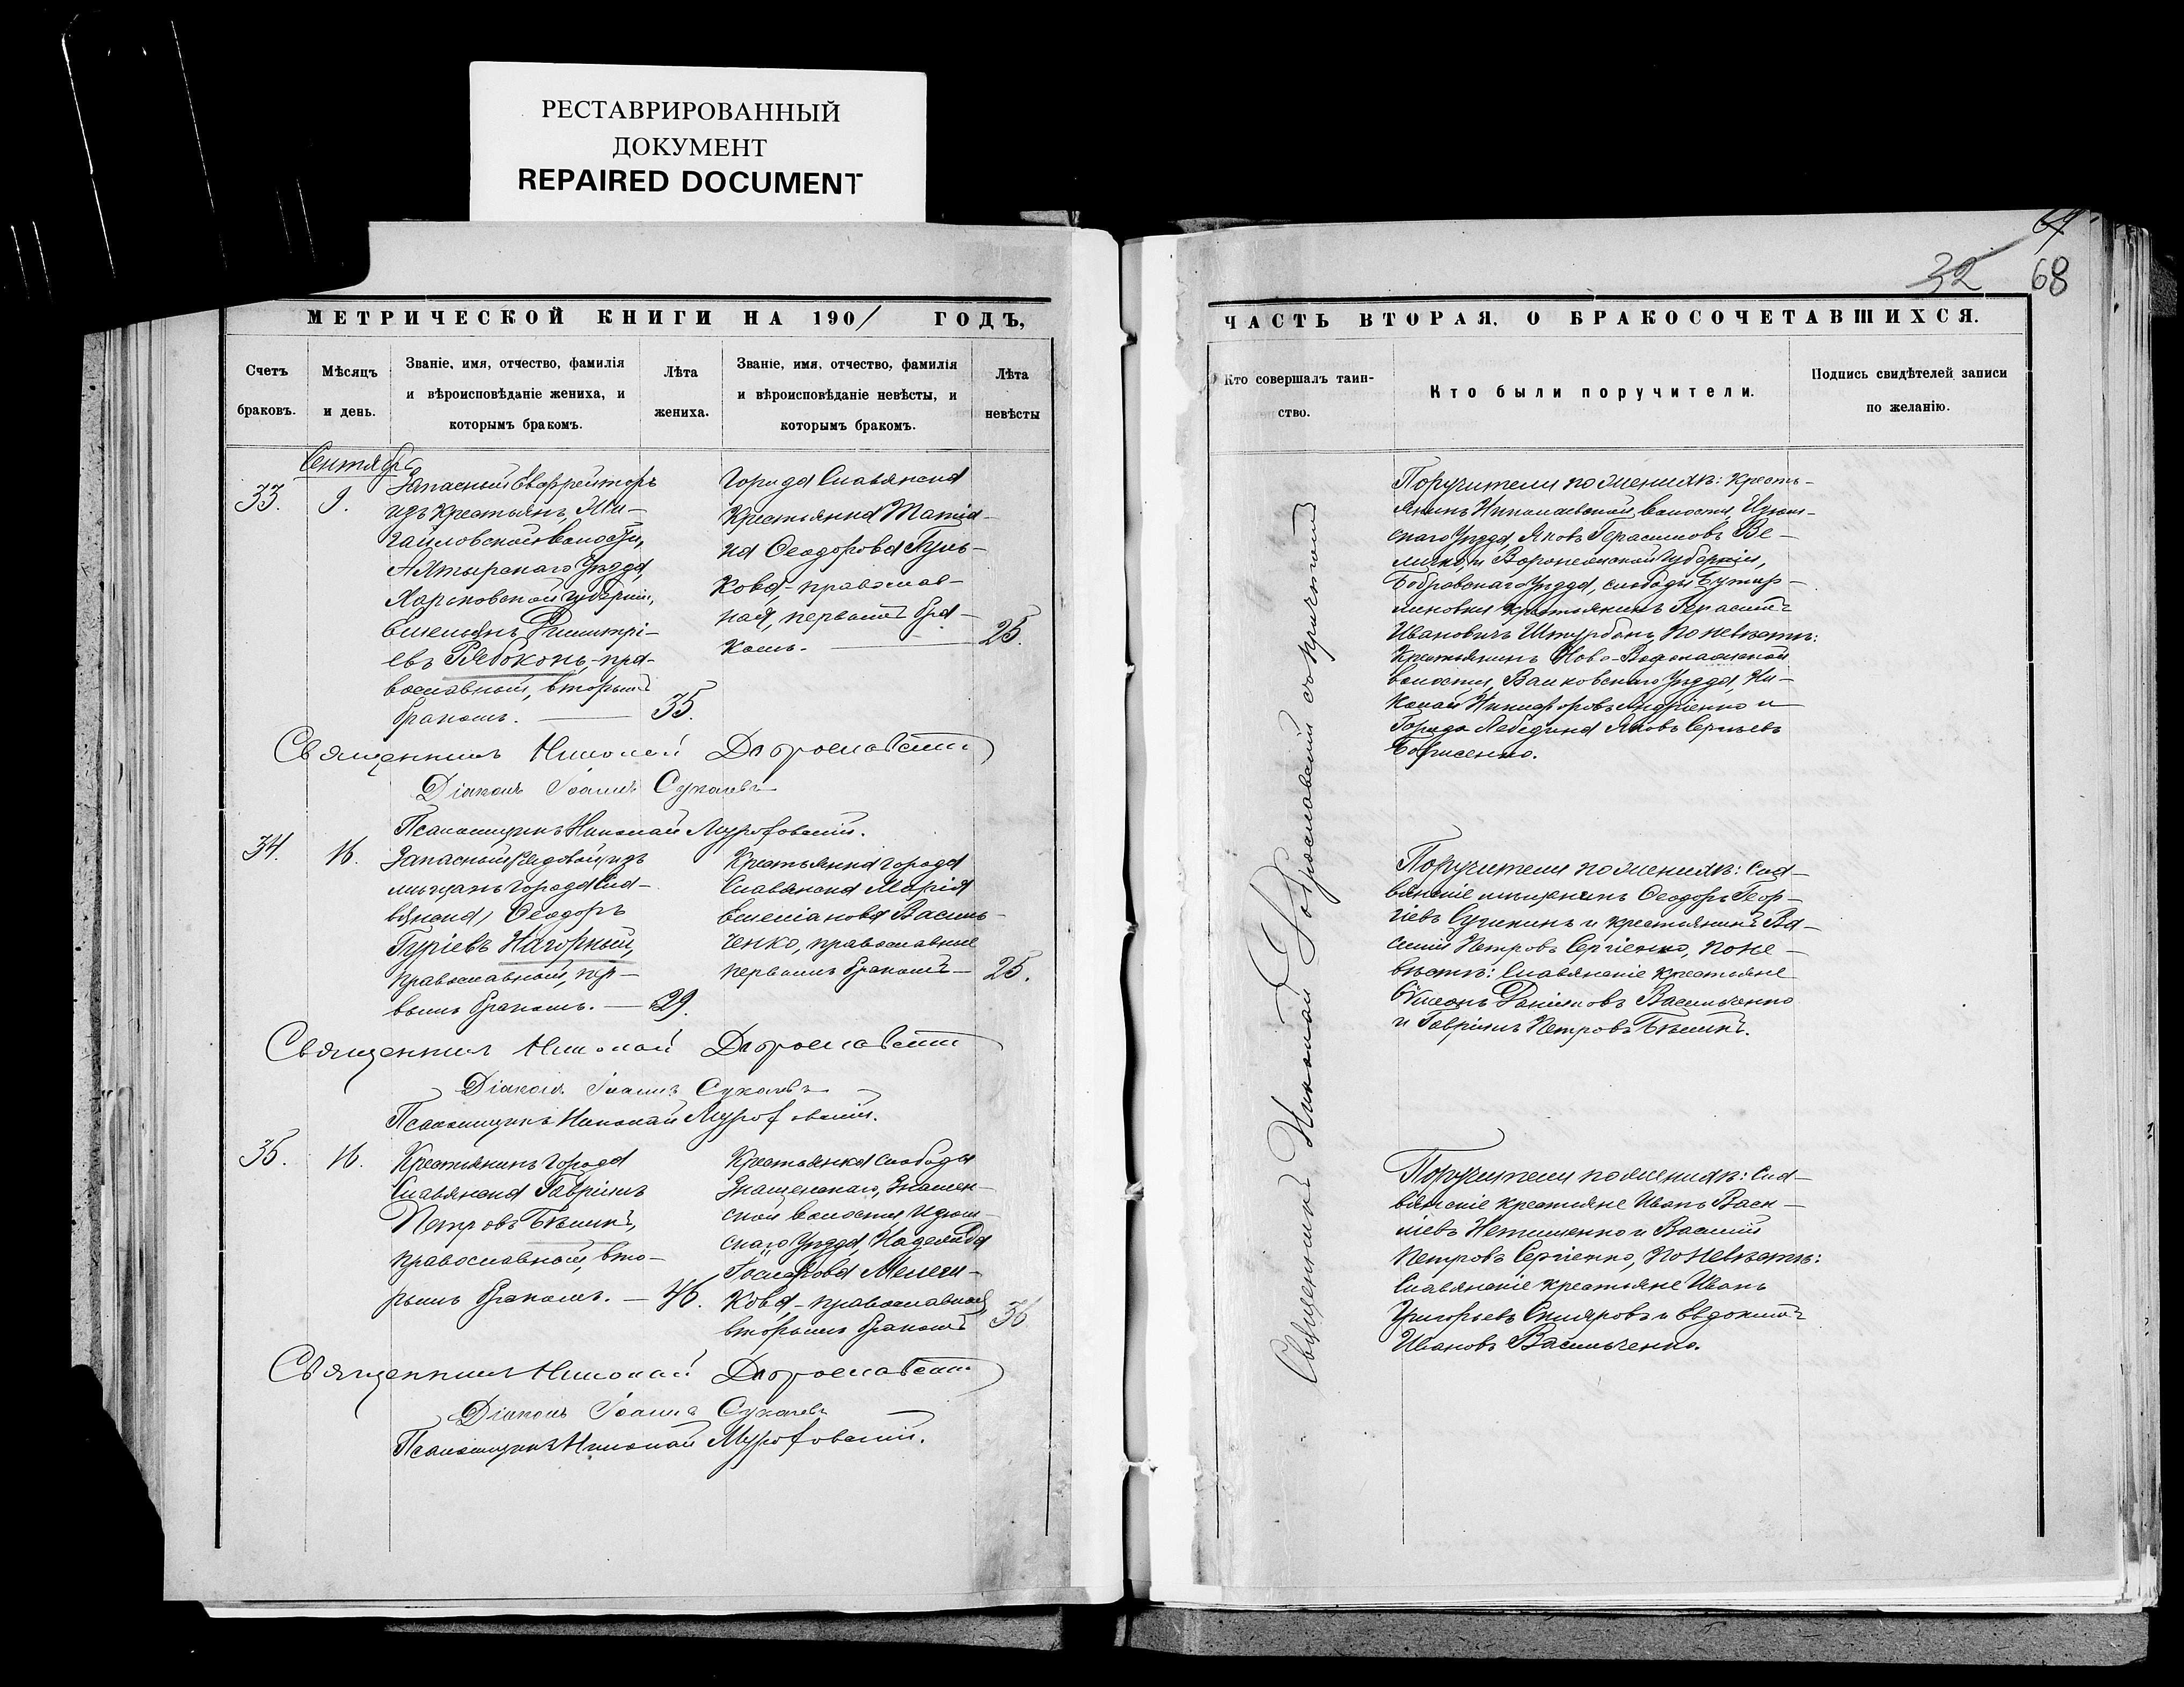 РЕСТАВРИРОВАННЫЙ
ДОКУМЕНТ
REPAIRED DOCUMENT
МЕТРИЧЕСКОЙ КНИГИ НА 1901 ГОДЪ,
Счетъ браковъ.
Мѣсяцъ и день.
Званіе, имя, отчество, фамилія
и вѣроисповѣданіе жениха, и
которымъ бракомъ.
Лѣта жениха.
Званіе, имя, отчество, фамилія
и вѣроисповѣданіе невѣсты, и
которымъ бракомъ.
Лѣта невѣсты
Сентябрь
33.
9.
Запасный Ефрейторъ
изъ крестьянъ, Ми-
хайловской волости,
Ахтырскаго Уѣзда,
Харьковской губерніи,
Емельянъ Димитрі-
евъ Рябоконь, пра-
вославный, вторымъ
бракомъ. 35.
Города Славянска
крестьянка Матіа-
на Ѳеодорова
кова, православ-
ная, первымъ бра-
комъ. 25.
Священникъ Николай Доброславскій
Діаконъ Іоаннъ Сукачевъ
Псаломщикъ Николай
34.
16.
Запасный рядовой изъ
мѣщанъ города Сла-
вянска, Ѳеодоръ
Гуріевъ Нагорный,
православный, пер-
вымъ бракомъ. 29.
Крестьянка города
Славянска Марія
Емеліанова Василь-
ченко, православные
первымъ бракомъ 25.
Священникъ Николай Доброславскій
Діаконъ Іоаннъ Сукачевъ
Псаломщикъ Николай
35.
16.
Крестьянинъ города
Славянска Гавріилъ
Петровъ Бѣликъ,
православный, вто-
рымъ бракомъ. 46.
Крестьянка слободы
Знаменскаго, Знамен-
ской волости Изюм-
скаго Уѣзда, Надежда
Іосифова
кова, православная,
вторымъ бракомъ 36
Священникъ Николай Доброславскій
Діаконъ Іоаннъ Сукачевъ
Псаломщикъ Николай
32 68
ЧАСТЬ ВТОРАЯ, О БРАКОСОЧЕТАВШИХСЯ.
Кто совершалъ таин-
ство.
Кто были поручители.
Подпись свидѣтелей записи
по желанію.
Священникъ Николай Доброславскій съ причтомъ
Поручители по женихѣ: кресть-
янинъ Николаевской волости, Изюм-
скаго Уѣзда, Яковъ Герасимовъ Ве-
личко, и Воронежской губерніи,
Бобровскаго Уѣзда, слободы Бутур-
линовки крестьянинъ Герасимъ
Ивановичъ Штурбанъ, по невѣстѣ:
Крестьянинъ Ново-Водолажской
волости, Валковскаго Уѣзда, Ни-
колай Никифоровъ Андріенко и
Города Лебедина Яковъ Сергѣевъ
Борисенко.
Поручители по женихѣ: Сла-
вянскіе мѣщанинъ Ѳеодоръ Геор-
гіевъ и крестьянинъ Ва-
силій Петровъ Сергіенко, по не-
вѣстѣ: Славянскіе крестьяне
Сѵмеонъ Даніиловъ Васильченко
и Гавріилъ Петровъ Бѣликъ.
Поручители по женихѣ: Сла-
вянскіе крестьяне Иванъ Васи-
ліевъ и Василій
Петровъ Сергіенко, по невѣстѣ:
Славянскіе крестьяне Иванъ
Григорьевъ Скляровъ и Евдокимъ
Ивановъ Васильченко.